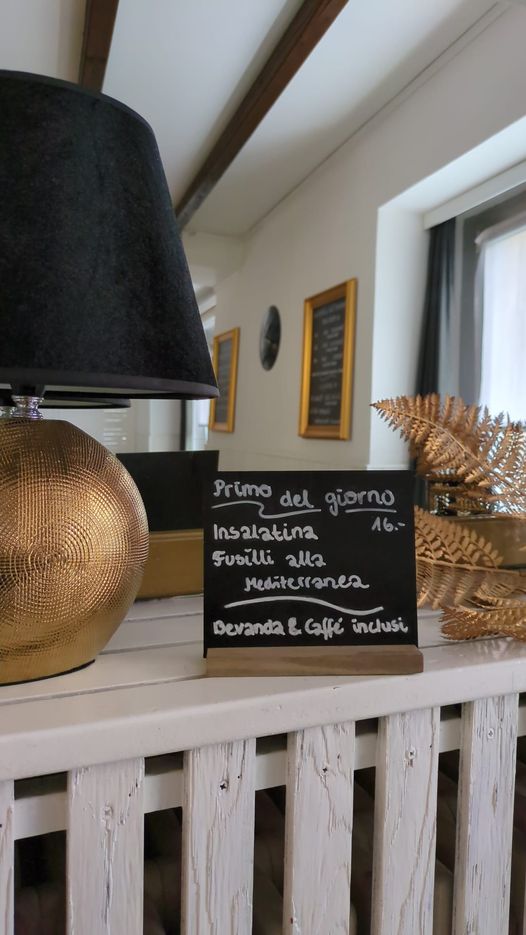 Primo del giorno
16.-
Insalatina
Fusilli alla
Mediterranea
Bevanda & Caffé inclusi